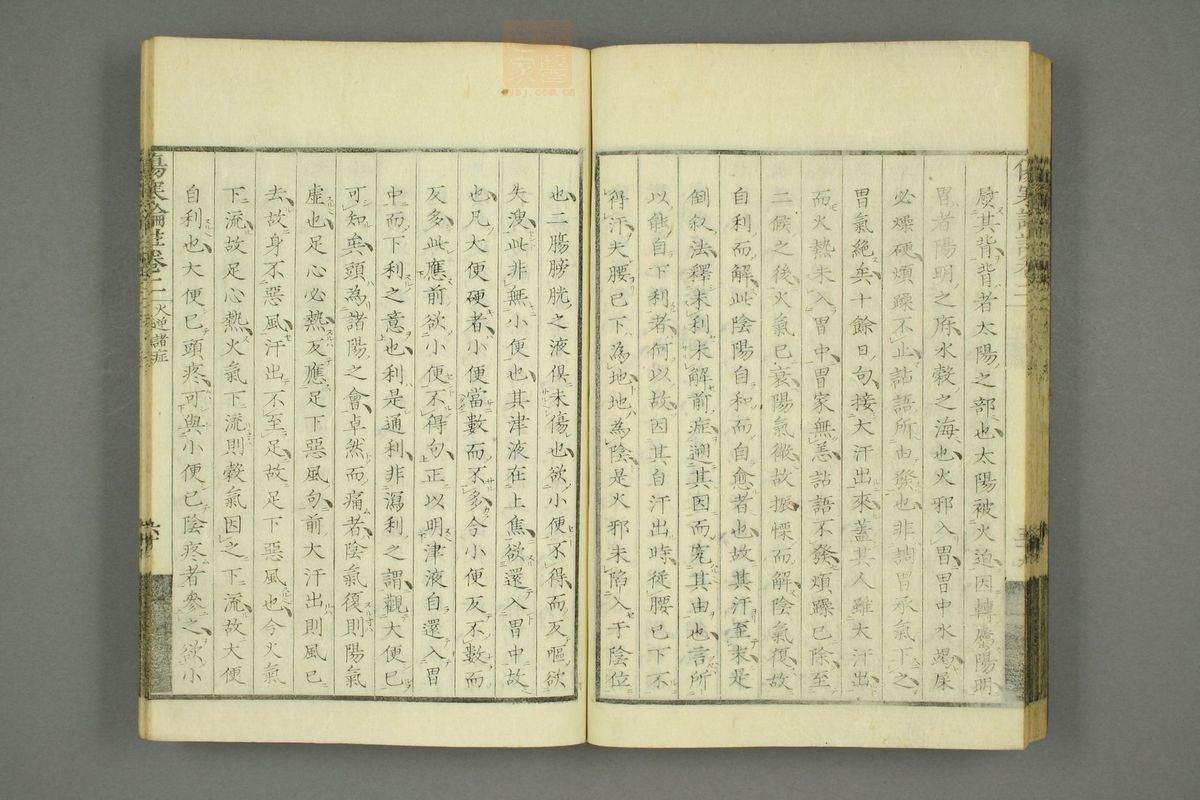 熨其背背者太陽之部也太陽被火迫因轉屬陽明
胃者陽明之府水穀之海也火邪入胃胃中水竭屎
必燥硬煩躁不止詀語所由發也非調胃承氣下之
胃氣絶矣十餘日句接大汗出來蓋其人雖大汗出
而火熱未入胃中胃家無恙詀語不發煩躁已除至
二候之後火氣已衰陽氣微故振慄而解陰氣復故
自利而解此陰陽自和而自愈者也故其汗至末是
倒叙法釋未利未解前症遡其因而究其由也言所
以能自下利者何以故因其自汗出時從腰已下不
得汗夫腰已下為地地為陰是火邪未陷入于陰位
也二膓膀胱之液俱未傷也欲小便不得而反嘔欲
失溲此非無小便也其津液在上焦欲還入胃中故
也凡大便硬者小便當數而不多今小便反不數而
反多此應前欲小便不得句正以明津液自還入胃
中而下利之意也利是通利非瀉利之謂觀大便已
可知矣頭為諸陽之會卓然而痛者陰氣復則陽氣
虛也足心必熱反應足下惡風句前大汗出則風已
去故身不惡風汗出不至足故足下惡風也今火氣
下流故足心熱火氣下流則穀氣因之下流故大便
自利也大便已頭疼可與小便已陰疼者參之欲小
傷寒論註卷之二
火逆諸症